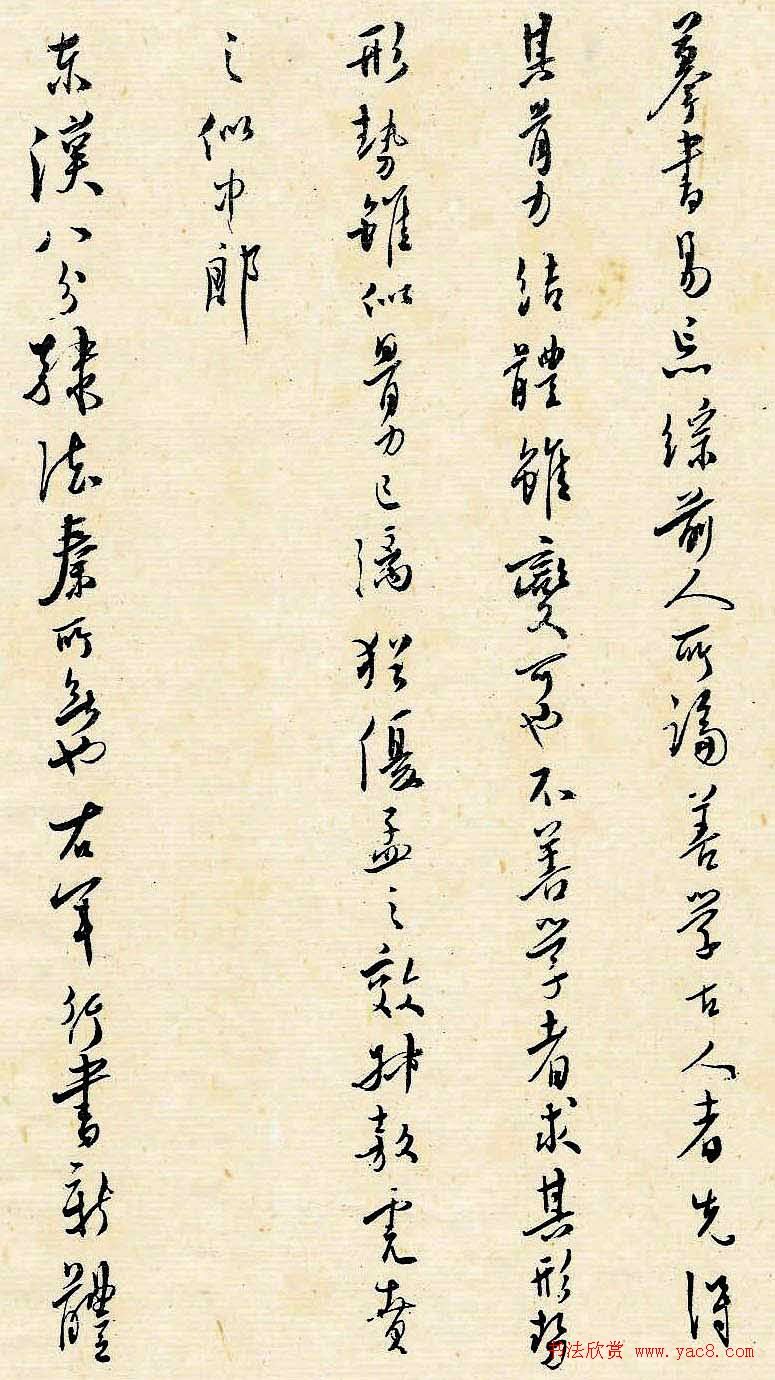 摹書易忘綜前人所論善學古人者先得
其骨力結體雖變可也不善學者求其形勢
形勢雖似骨力已漓猶優孟之效叔敖虎賁
之似中郎
東漢八分隸法秦所無也右軍行書新體
书法欣赏 www.yac8.com